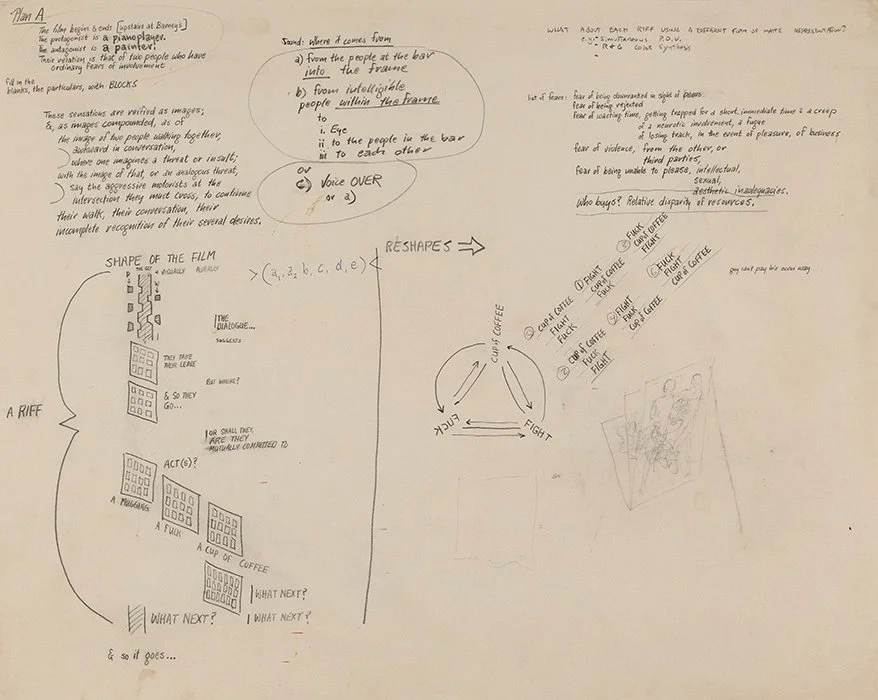 Plan A
The film begins & ends [upstairs at Barney's]
The protagonist is a pianoplayer.
The antagonist is a painter.
Their relation is that of two people who have
ordinary fears of involvement
fill in the
blanks, the particulars, with BLOCKS
These sensations are reified as images;
&, as images compounded, as of
the image of two people walking together,
awkward in conversation,
where one imagines a threat or insult;
with the image of that, or an analogous threat,
say the aggressive motorists at the
intersection they must cross, to continue
their walk, their conversation, their
incomplete recognition of their several desires.
Sound: Where it comes from
a) from the people at the bar
into the frame
b) from intelligible
people within the frame
to
i. Eye
ii to the people in the bar
iii to each other
or
c) Voice OVER
or a)
WHAT ABOUT EACH RIFF USING A DIFFERENT FORM OF REPRESENTATION?
e.g. - Simultaneous P.O.V.
- R + G Color Synthesis
list of fears: fear of being downranked in sight of peers
fear of being rejected
fear of wasting time, getting trapped for a short, immediate time = a creep
of a neurotic involvement, a fugue
of losing track, in the event of pleasure, of business
fear of violence, from the other, or
third parties,
fear of being unable to please, intellectual,
sexual,
aesthetic inadequacies.
who buys? Relative disparity of resources.
guy can't pay his
away
SHAPE OF THE FILM
VISUALLY AURALLY
> (a₁, a₂ b, c, d, e) <
THE
DIALOGUE...
SUGGESTS
THEY TAKE
THEIR LEAVE
BUT WHERE?
& SO THEY
GO...
OR SHALL THEY,
ARE THEY
MUTUALLY COMMITTED TO
A RIFF
ACT(S)?
A MUGGING
A FUCK
A CUP OF COFFEE
WHAT NEXT?
WHAT NEXT?
WHAT NEXT?
& so it goes...
RESHAPES
CUP of COFFEE
FUCK
FIGHT
CUP of COFFEE
FIGHT
FUCK
① FIGHT
CUP of COFFEE
FUCK
FUCK
CUP of COFFEE
FIGHT
CUP of COFFEE
FUCK
FIGHT
FIGHT
FUCK
CUP of COFFEE
FUCK
FIGHT
CUP of COFFEE